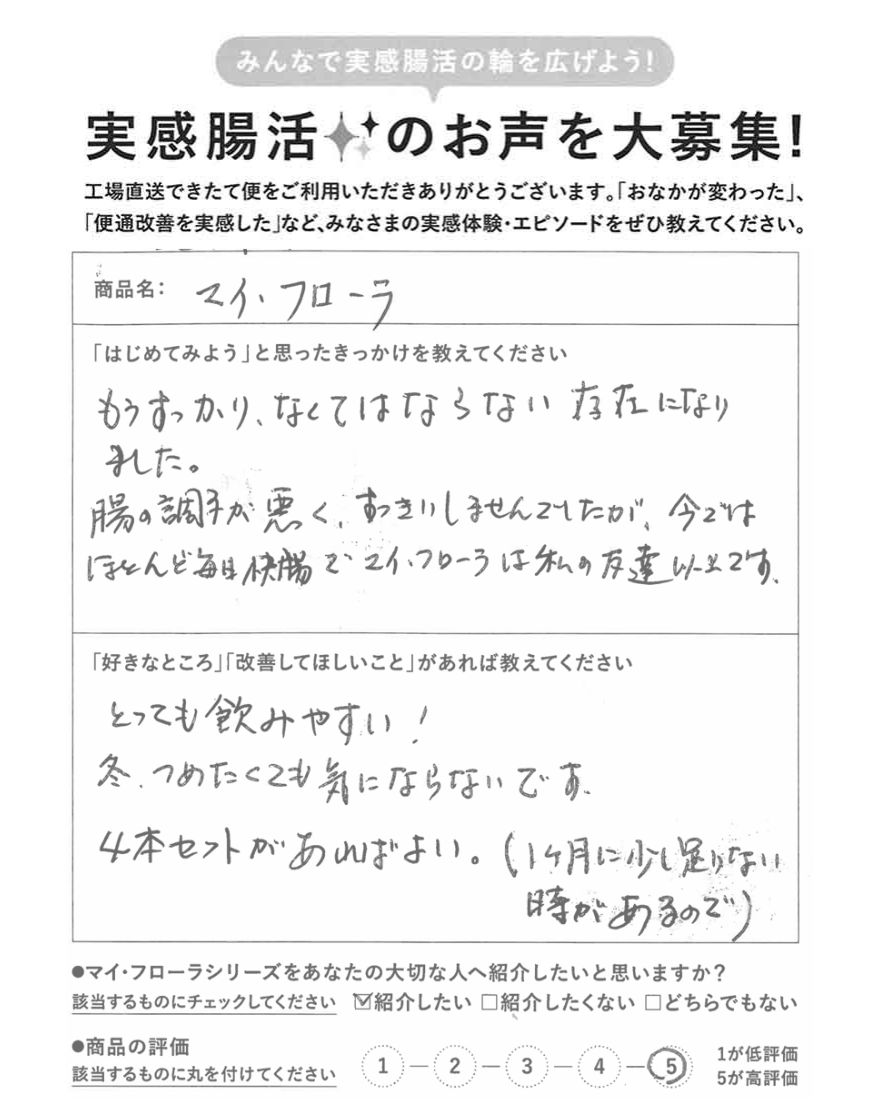 みんなで実感腸活の輪を広げよう!
実感腸活のお声を大募集!
工場直送できたて便をご利用いただきありがとうございます。「おなかが変わった」、
「便通改善を実感した」など、みなさまの実感体験・エピソードをぜひ教えてください。
商品名: マイ・フローラ
「はじめてみよう」と思ったきっかけを教えてください
もうすっかり、なくてはならない存在になり
ました。
腸の調子が悪く、すっきりしませんでしたが、今では
ほとんど毎日快腸でマイ・フローラは私の友達以上です。
「好きなところ」「改善してほしいこと」があれば教えてください
とっても飲みやすい!
冬、つめたくても気にならないです。
4本セットがあればよい。(1ヶ月に少し足りない
時があるので)
●マイ・フローラシリーズをあなたの大切な人へ紹介したいと思いますか?
該当するものにチェックしてください ☑紹介したい □紹介したくない □どちらでもない
●商品の評価
該当するものに丸を付けてください
1 — 2 — 3 — 4 — 5
1が低評価
5が高評価